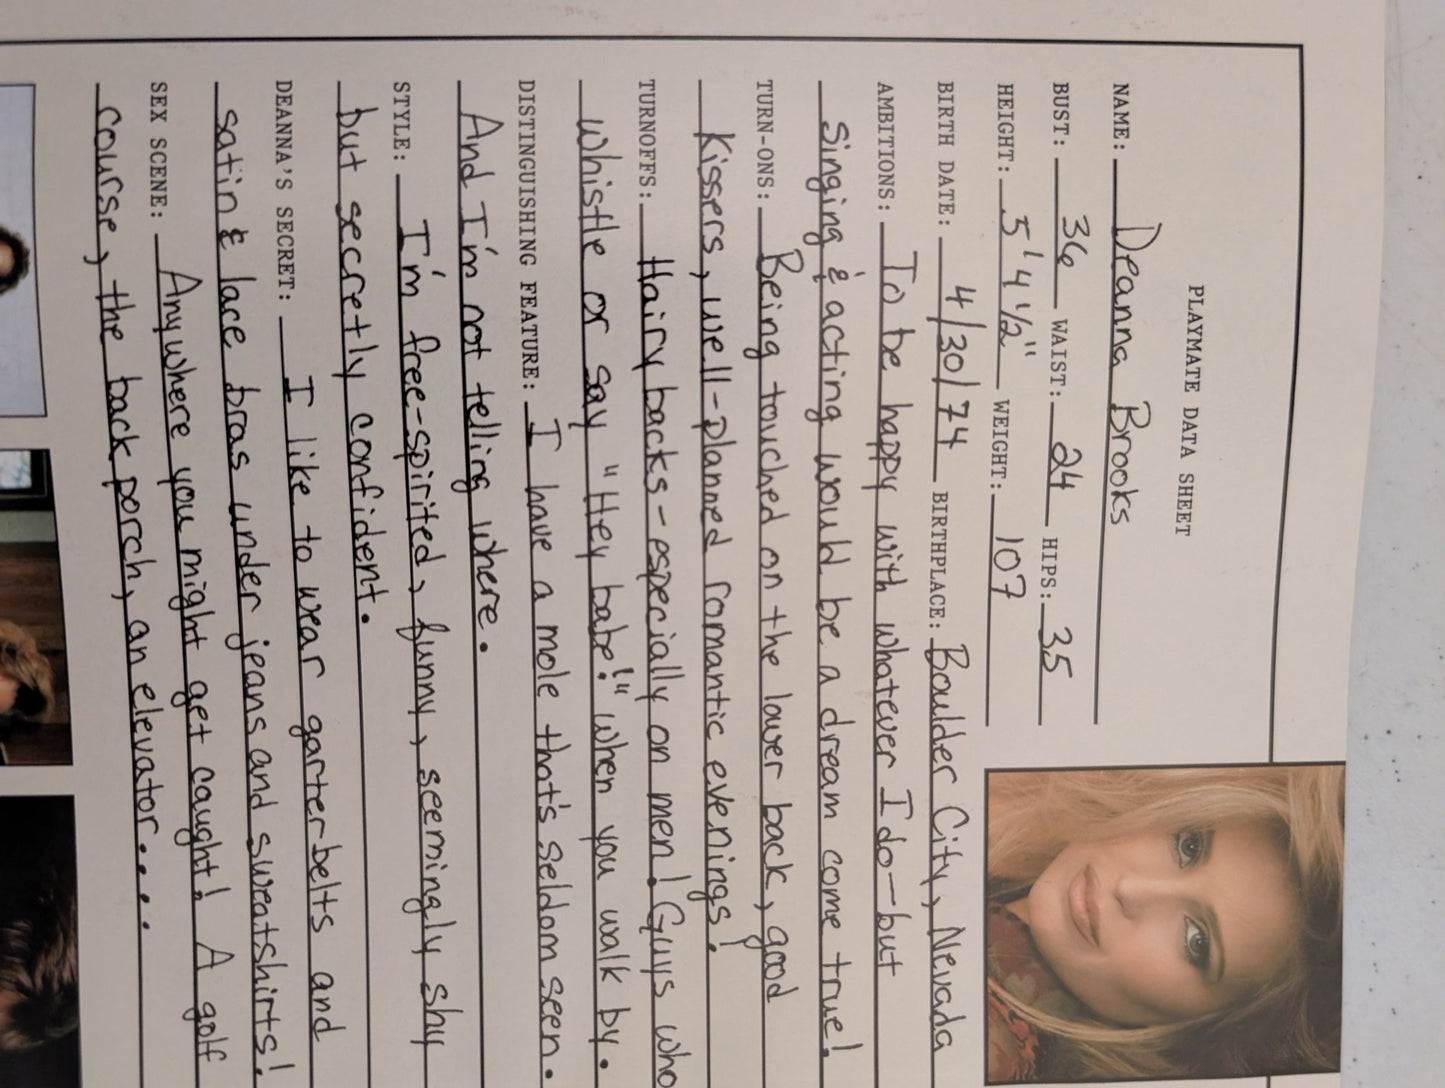 PLAYMATE DATA SHEET
NAME: Deanna Brooks
BUST: 36 WAIST: 24 HIPS: 35
HEIGHT: 5'4 1/2" WEIGHT: 107
BIRTH DATE: 4/30/74 BIRTHPLACE: Boulder City, Nevada
AMBITIONS: To be happy with whatever I do—but
singing & acting would be a dream come true!
TURN-ONS: Being touched on the lower back, good
kissers, well-planned romantic evenings!
TURNOFFS: Hairy backs - especially on men! Guys who
whistle or say "Hey babe!" when you walk by.
DISTINGUISHING FEATURE: I have a mole that's seldom seen.
And I'm not telling where.
STYLE: I'm free-spirited, funny, seemingly shy
but secretly confident.
DEANNA'S SECRET: I like to wear garterbelts and
satin & lace bras under jeans and sweatshirts!
SEX SCENE: Anywhere you might get caught! A golf
course, the back porch, an elevator....